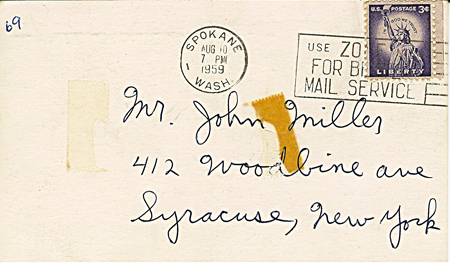 69
SPOKANE
AUG 10
7 PM
1959
1
WASH.
U.S. POSTAGE 3¢
IN GOD WE TRUST
LIBERTY
USE ZO
FOR B
MAIL SERVICE
Mr. John Miller
412 Woodbine ave
Syracuse, New York